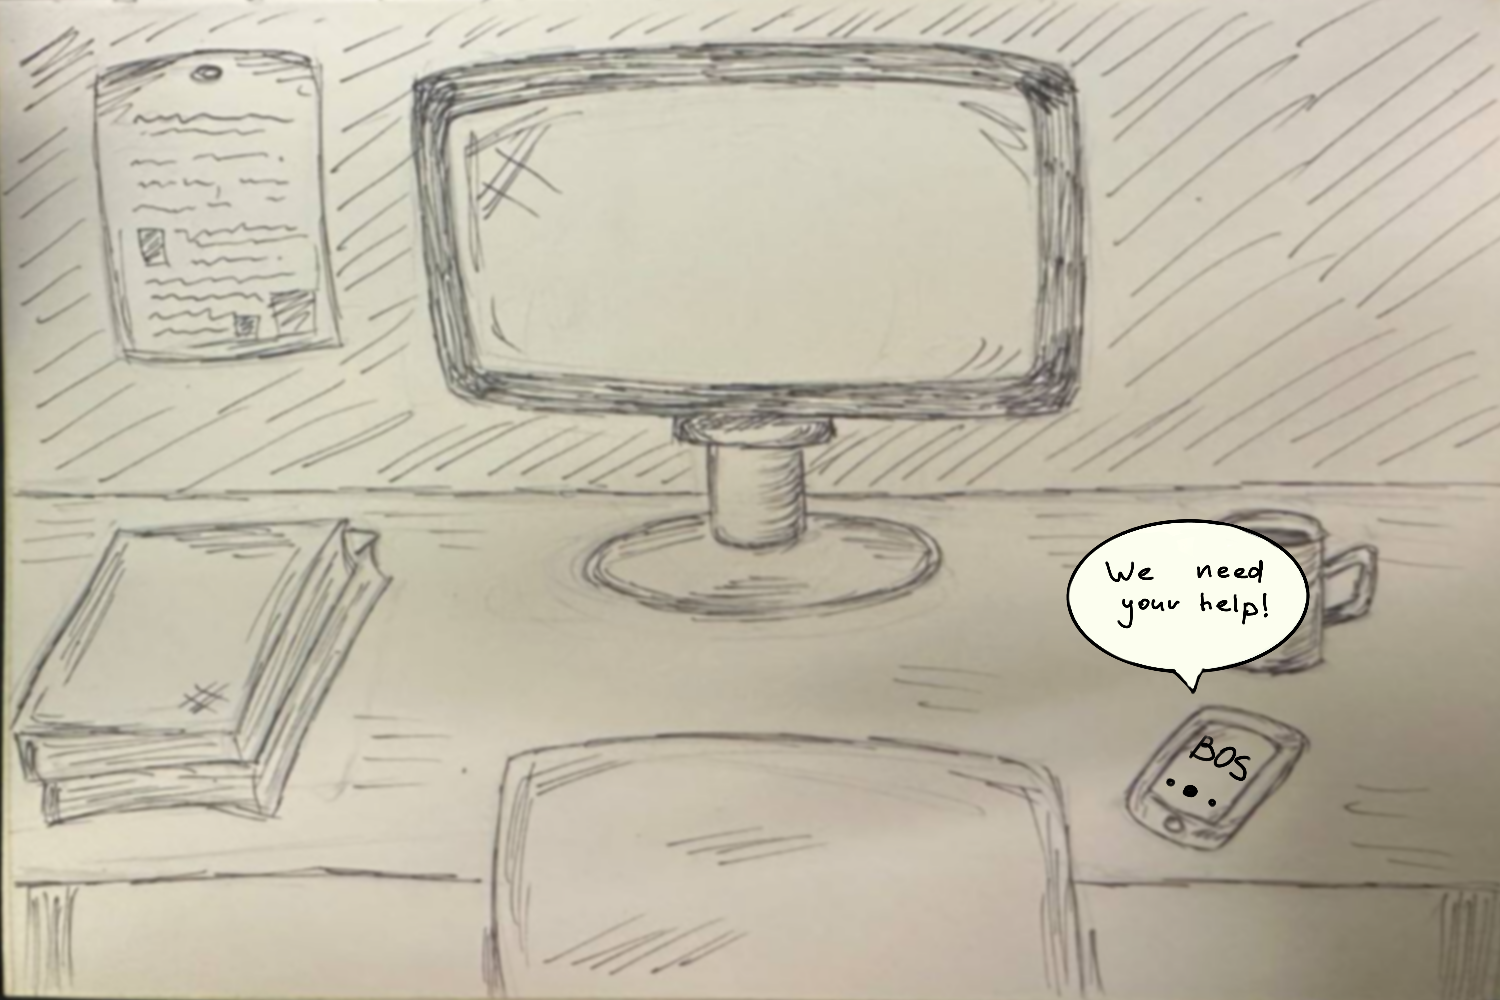 We need
your help!
BOS